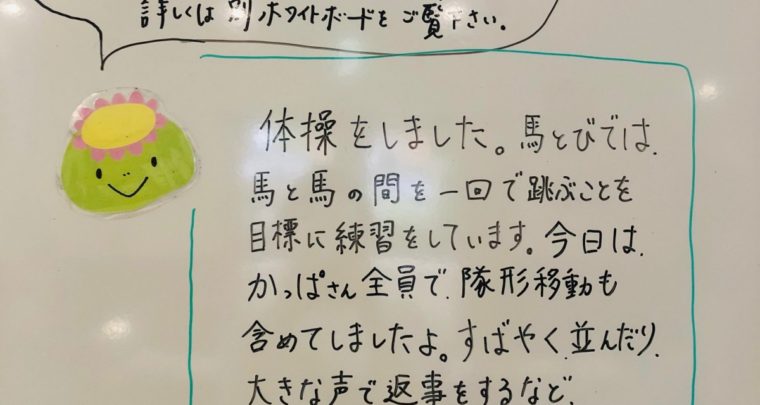 詳しくは別ホワイトボードをご覧下さい。
体操をしました。馬とびでは、
馬と馬の間を一回で跳ぶことを
目標に練習をしています。今日は、
かっぱさん全員で、隊形移動も
含めてしましたよ。すばやく、並んだり、
大きな声で返事をするなど、